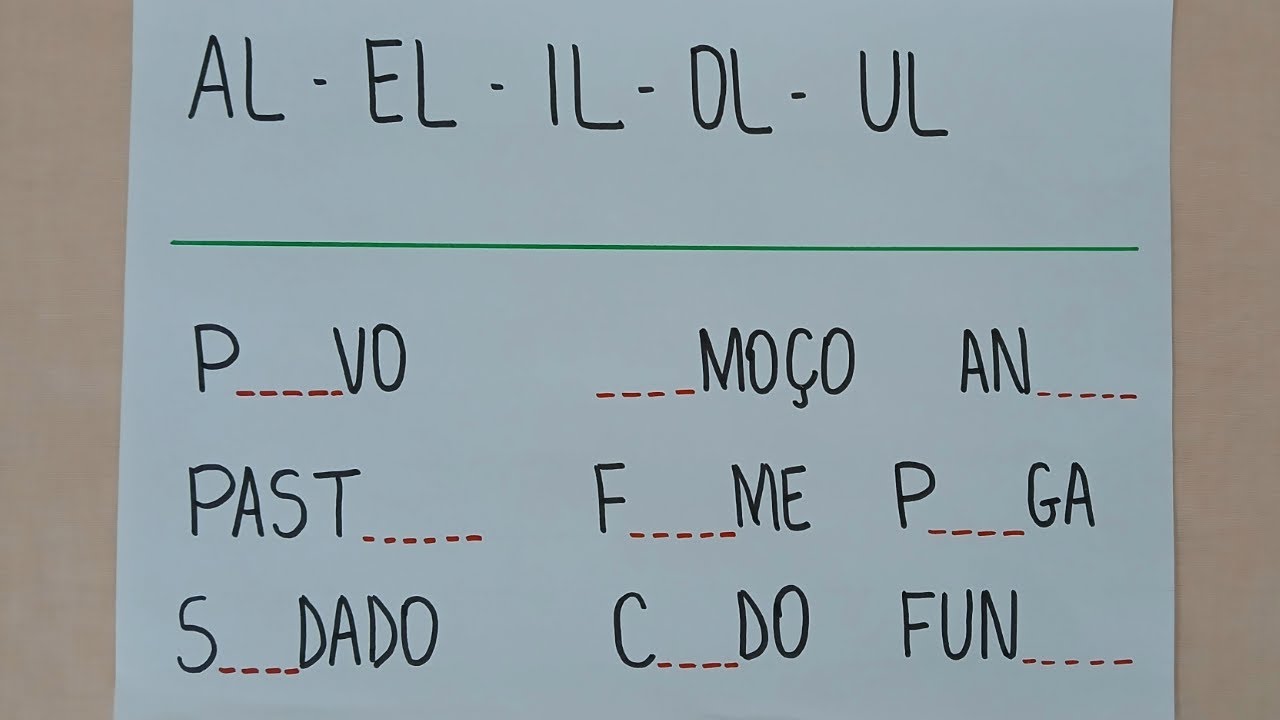 AL - EL - IL - OL - UL
P____VO ____MOÇO AN____
PAST____ F____ME P____GA
S____DADO C____DO FUN____